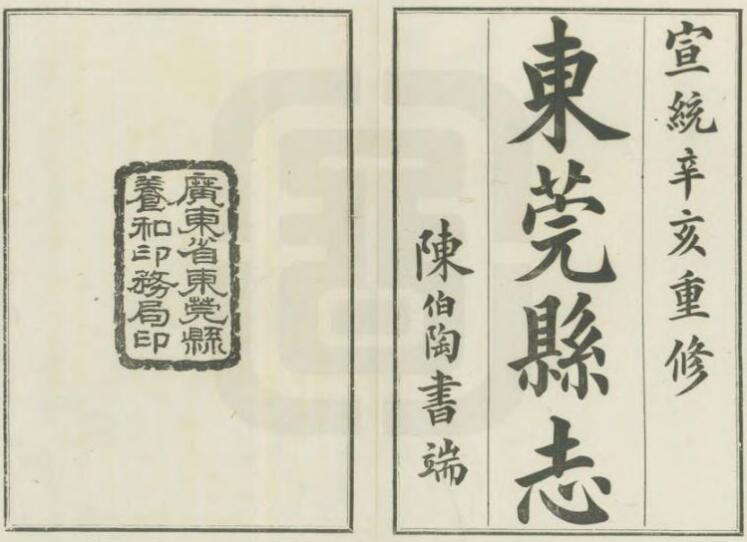 宣統辛亥重修
東莞縣志
陳伯陶書端
廣東省東莞縣
養和印務局印